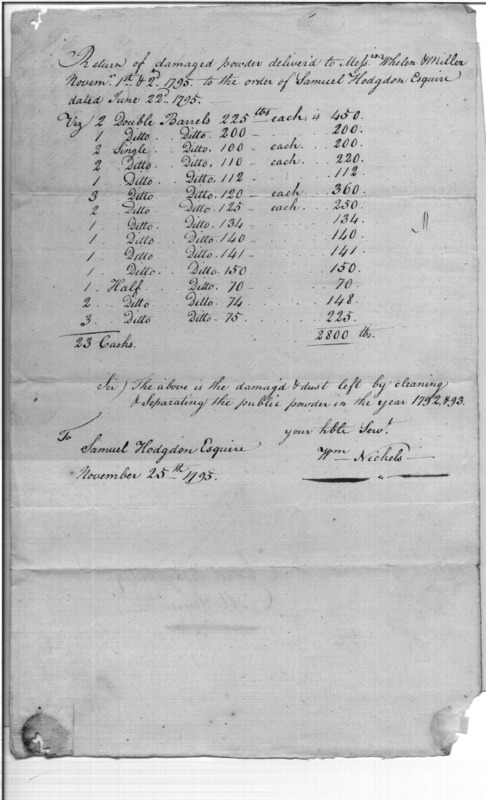 Return of damaged powder deliver'd to Mess.rs Whelen & Miller
Novem.r 1st & 2d 1795. to the order of Samuel Hodgdon Esquire
dated June 22d 1795.
Viz 2 Double Barrels 225 lbs each is 450.
1 Ditto Ditto. 200 200.
2 Single Ditto. 100 each 200.
2 Ditto Ditto. 110 each 220.
1 Ditto Ditto. 112 112
3 Ditto Ditto. 120 each 360.
2 Ditto Ditto. 125 each. 250.
1 Ditto Ditto. 134 134
1 Ditto Ditto. 140 140.
1 Ditto Ditto. 141 141.
1 Ditto Ditto. 150 150.
1 Half Ditto. 70 70.
2 Ditto Ditto. 74 148.
3 Ditto Ditto. 75. 225.
23 Casks. 2800 lbs.
Sir) The above is the damag'd & dust left by cleaning
& Separating the public powder in the year 1792. & 93.
your hble Servt.
To
Samuel Hodgdon Esquire
Wm Nichols
November 25th 1795.